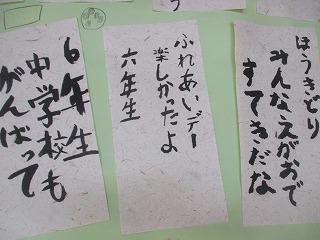 ほうきどり
みんなえがおで
すてきだな
ふれあいデー
楽しかったよ
六年生
6年生
中学校も
がんばって